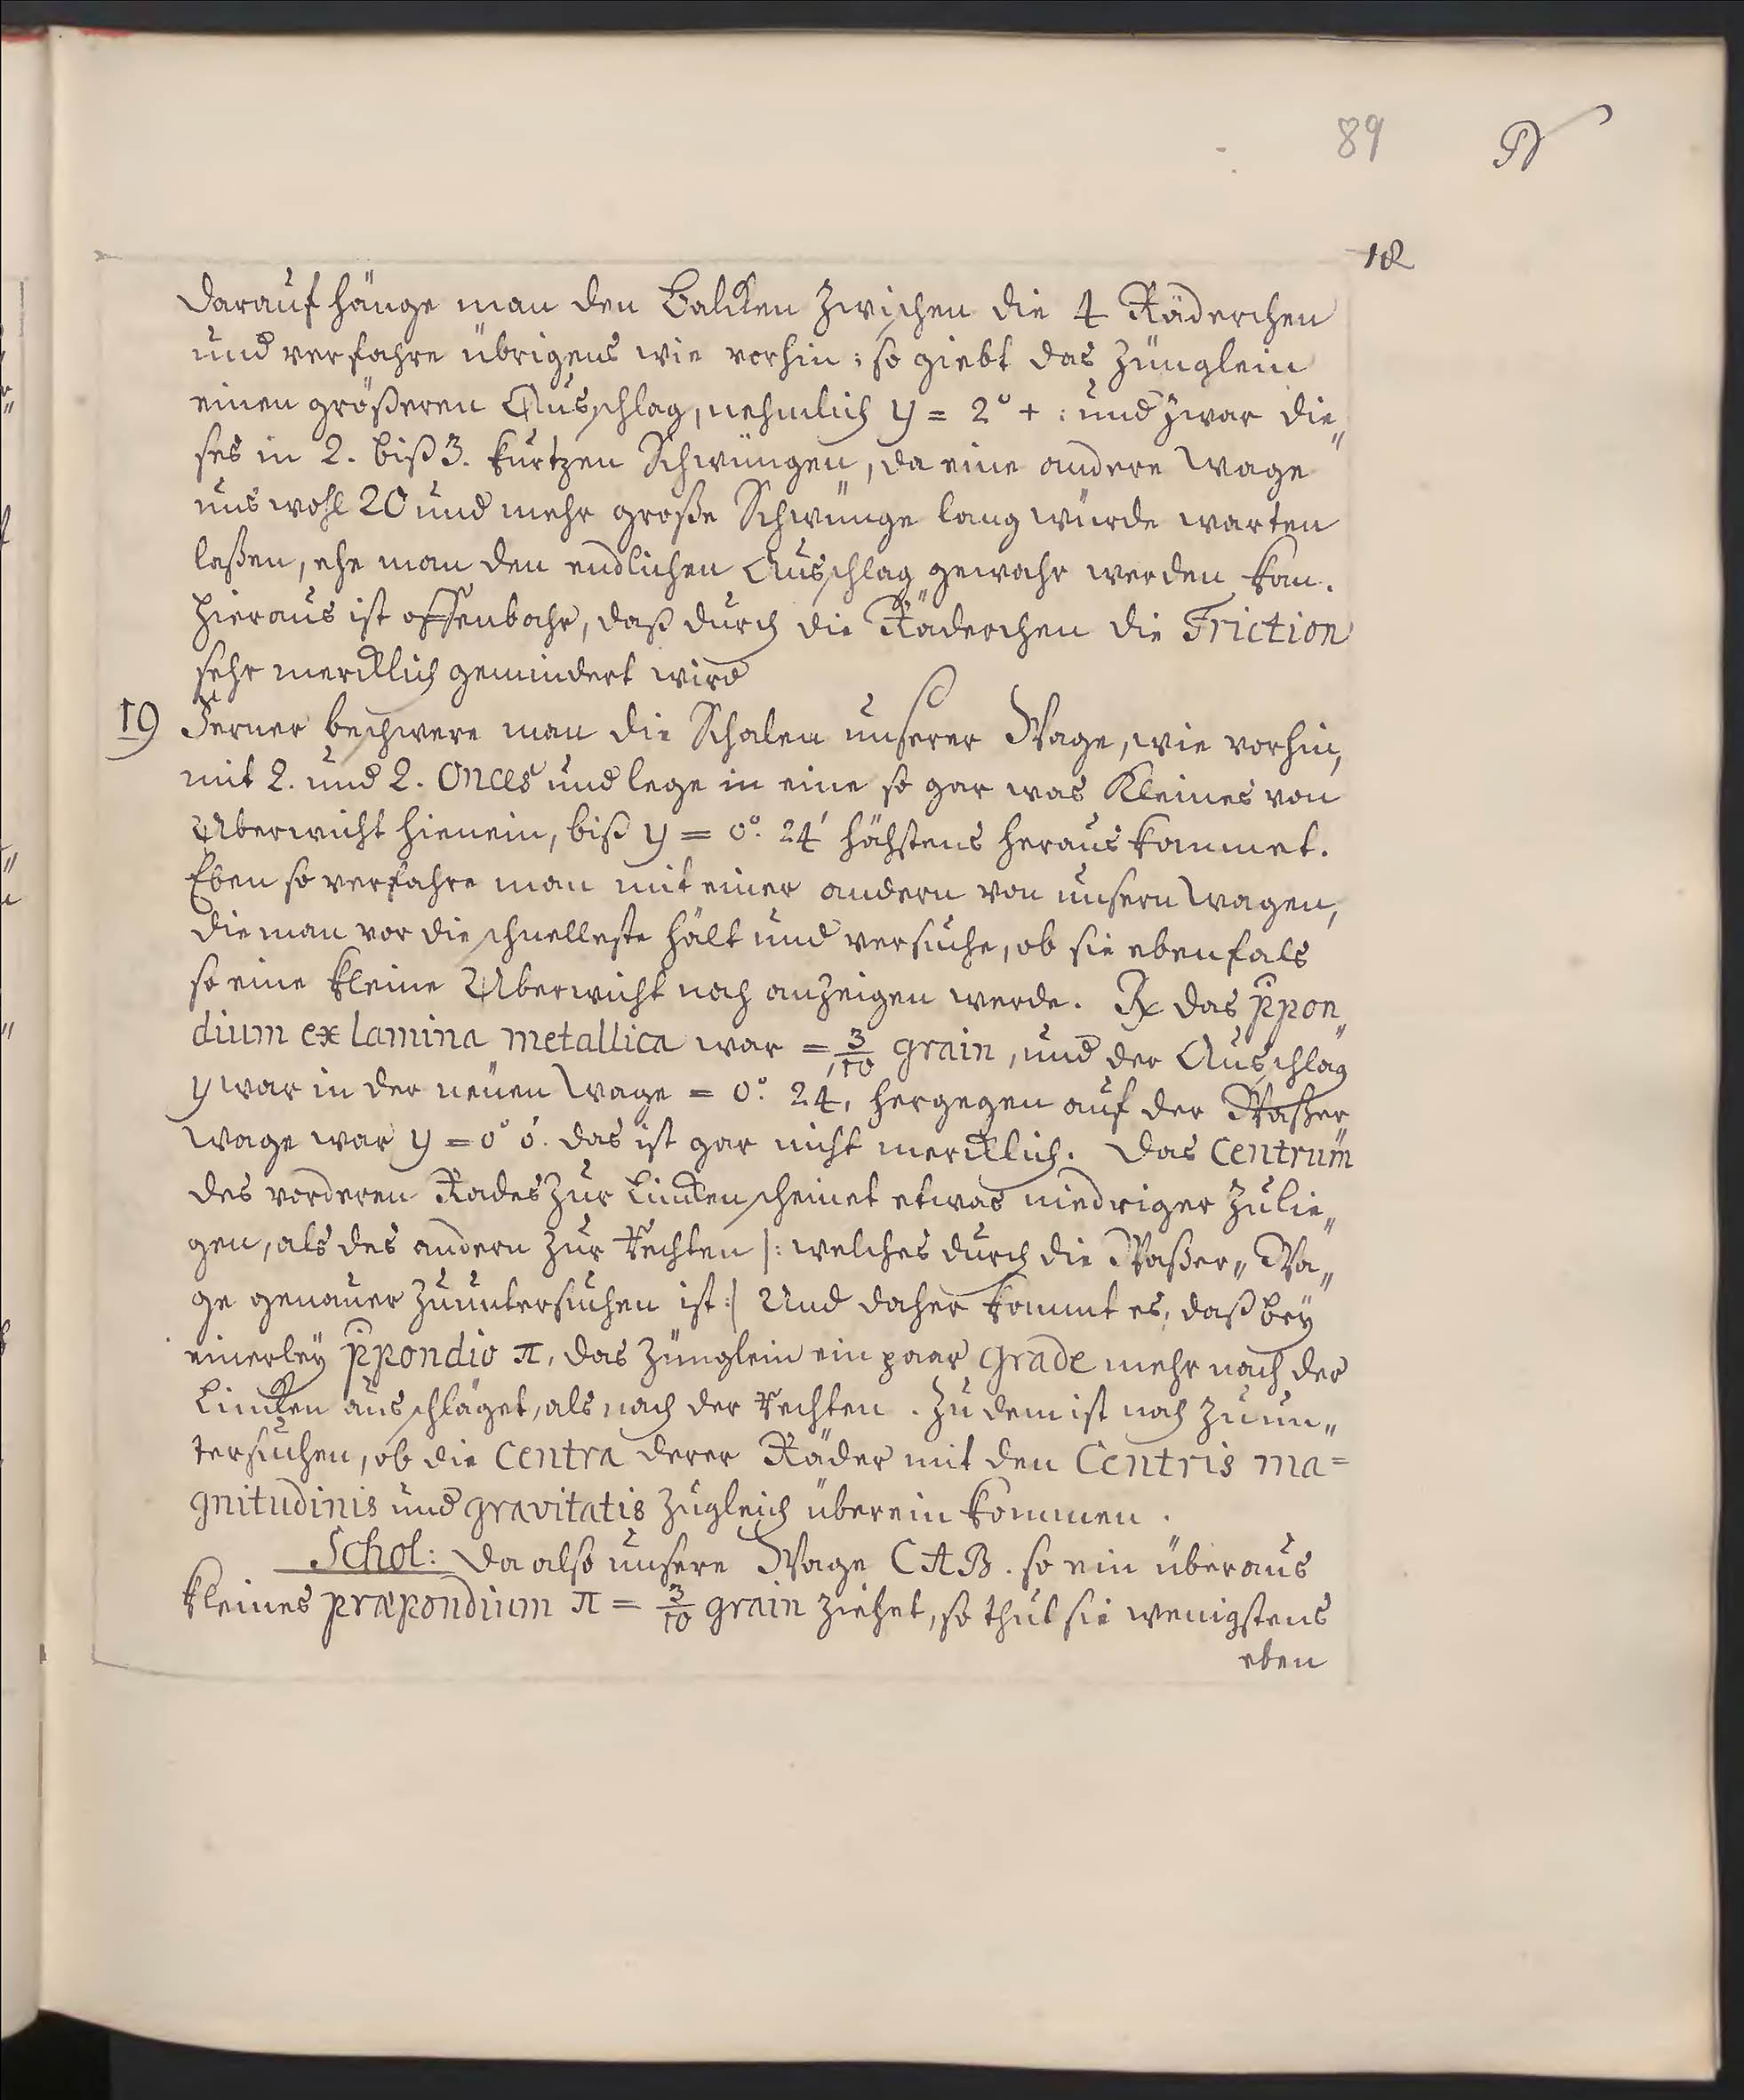 89
18
darauf hänge man den Balcken zwischen die 4 Räderchen
und verfahre übrigens wie vorhin; so giebt das Zünglein
einen größeren Ausschlag, nehmlich y = 2° + : und zwar die„
ses in 2. biß 3. kurtzen Schwüngen, da eine andere Wage
uns wohl 20 und mehr große Schwünge lang würde warten
laßen, ehe man den endlichen Ausschlag gewahr werden kan.
Hieraus ist offenbahr, daß durch die Räderchen die Friction
sehr mercklich gemindert wird
19) Ferner beschwere man die Schalen unserer Wage, wie vorhin,
mit 2. und 2. Onces und lege in eine so gar was kleines von
Uberwicht hienein, biß y = 0°. 24' höchstens heraus kommet.
Eben so verfahre man mit einer andern von unsern Wagen,
die man vor die schnelleste hält und versuche, ob sie ebenfals
so eine kleine Uberwicht noch anzeigen werde. Rx das ppon„
dium ex lamina metallica war = 3/10 grain, und der Ausschlag
y war in der neuen Wage = 0°. 24, hergegen auf der Waßer„
Wage war y = 0° 0'. das ist gar nicht mercklich. Das Centrum
des vorderen Rades zur Lincken scheinet etwas niedriger zu lie„
gen, als des andern zur Rechten |: welches durch die Waßer„ Wa„
ge genauer zu untersuchen ist :| Und daher kommt es, daß bey
einerley ppondio π, das Zünglein ein paar grade mehr nach der
Lincken ausschläget, als nach der Rechten. Zu dem ist noch zu un„
tersuchen, ob die Centra derer Räder mit den Centris ma=
gnitudinis und gravitatis zugleich überein kommen.
Schol: Da also unsere Wage CAB. so ein überaus
kleines præpondium π = 3/10 grain ziehet, so thut sie wenigstens
eben